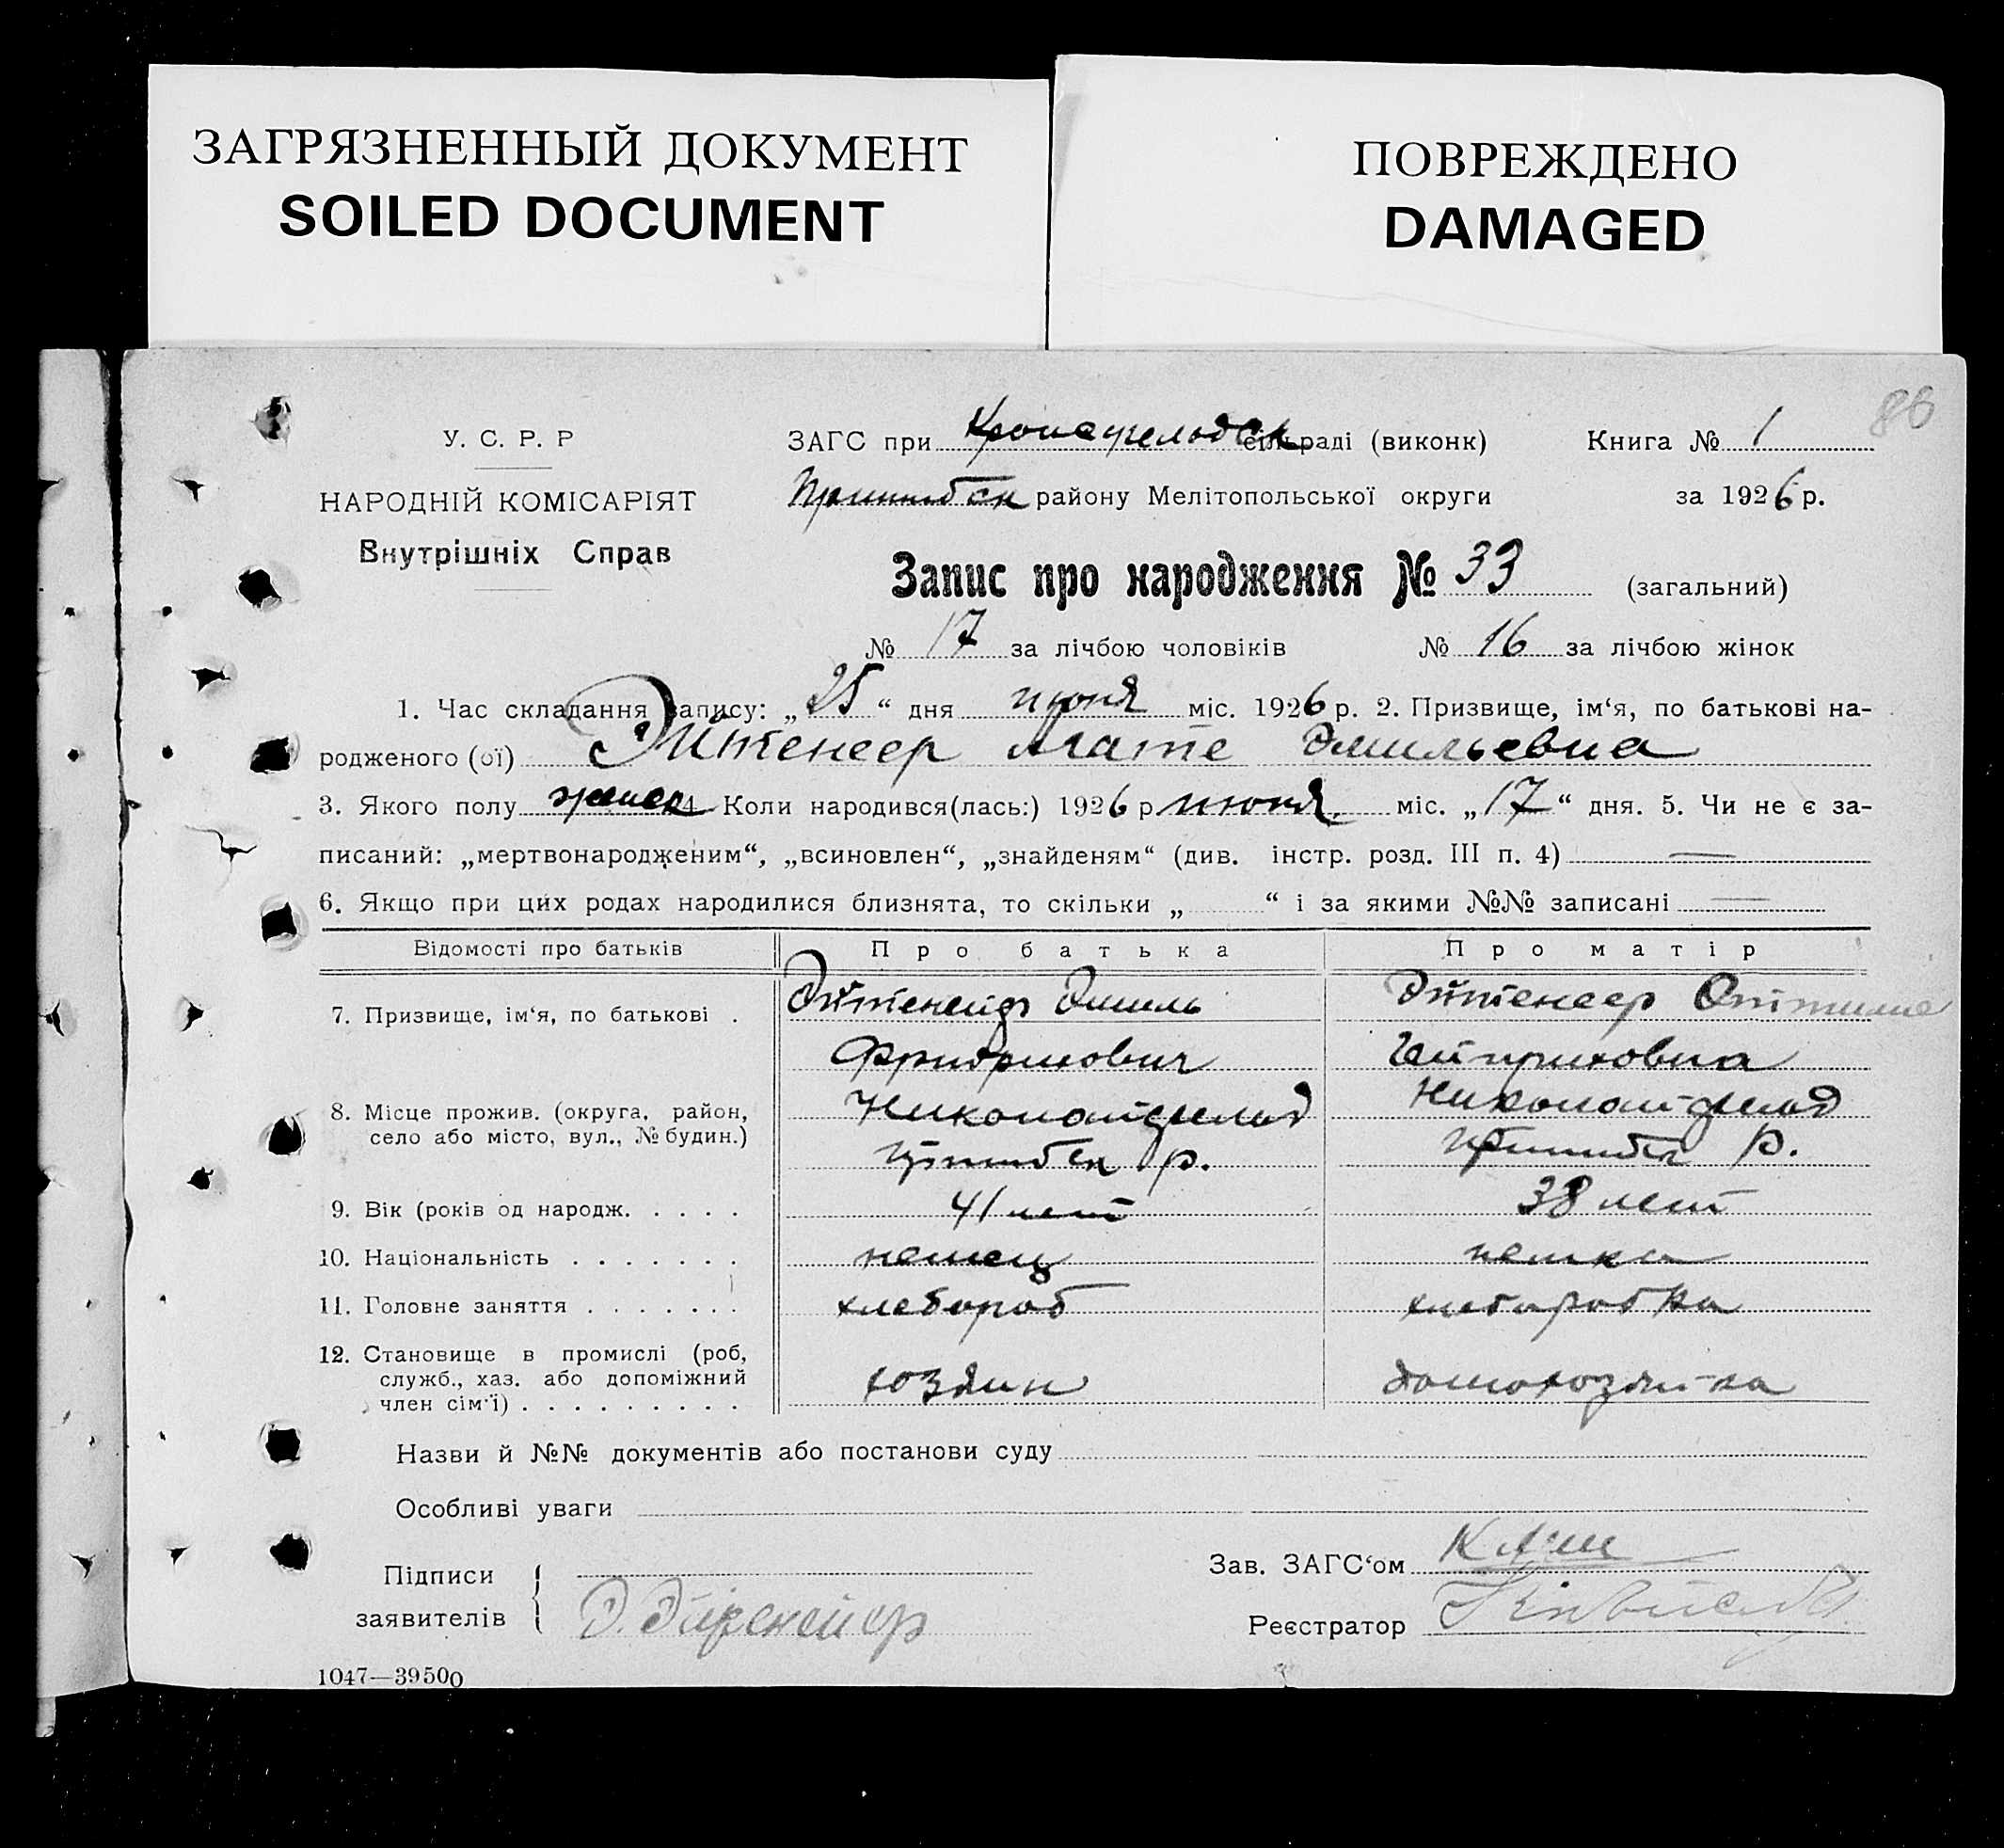 ЗАГРЯЗНЕННЫЙ ДОКУМЕНТ
SOILED DOCUMENT
ПОВРЕЖДЕНО
DAMAGED
86
У. С. Р. Р
НАРОДНІЙ КОМІСАРІЯТ
Внутрішніх Справ
ЗАГС при сільраді (виконк) Книга № 1
району Мелітопольської округи за 1926 р.
Запис про народження № 33 (загальний)
№ 17 за лічбою чоловіків № 16 за лічбою жінок
1. Час складання запису: „25“ дня июня міс. 1926 р. 2. Призвище, ім‘я, по батькові на-
родженого (ої) Эйтенеер Агате Эмильевна
3. Якого полу женск 4. Коли народився(лась:) 1926 р. июня міс. „17“ дня. 5. Чи не є за-
писаний: „мертвонародженим“, „всиновлен“, „знайденям“ (див. інстр. розд. III п. 4) —
6. Якщо при цих родах народилися близнята, то скільки „ “ і за якими №№ записані —
Відомості про батьків Про батька Про матір
7. Призвище, ім‘я, по батькові . Эйтенеер Эмиль Эйтенеер
Фридрихович Гейприховна
8. Місце прожив. (округа, район, село або місто, вул., № будин.) Николайфельд Николайфельд
р. р.
9. Вік (років од народж. . . . . 41 лет 38 лет
10. Національність . . . . . . . немец немка
11. Головне заняття . . . . . . . хлебороб хлеборобка
12. Становище в промислі (роб, служб., хаз. або допоміжний член сім‘ї) . . . . . . . . . хозяин домохозяйка
Назви й №№ документів або постанови суду
Особливі уваги
Підписи заявителів
Зав. ЗАГС‘ом
Реєстратор
1047—39500